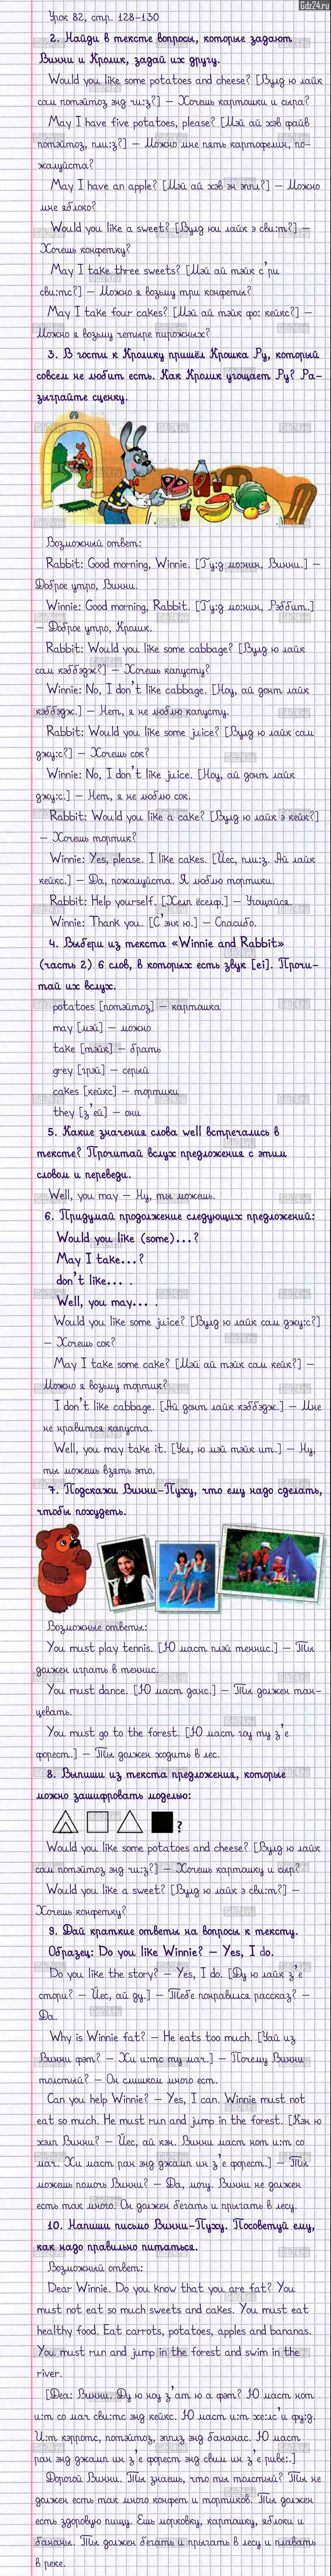 Gdz24.ru
Урок 82, стр. 128-130
2. Найди в тексте вопросы, которые задают
Винни и Кролик, задай их другу.
Would you like some potatoes and cheese? [Вууд ю лайк
сам потэйтоз энд чи:з?] – Хочешь картошки и сыра?
May I have five potatoes, please? [Мэй ай хэв файв
потэйтоз, пли:з?] – Можно мне пять картофелин, по-
жалуйста?
May I have an apple? [Мэй ай хэв эн эппл?] – Можно
мне яблоко?
Would you like a sweet? [Вууд юи лайк э сви:т?] –
Хочешь конфетку?
May I take three sweets? [Мэй ай тэйк с'ри
сви:тс?] – Можно я возьму три конфеты?
May I take four cakes? [Мэй ай тэйк фо: кейкс?] –
Можно я возьму четыре пирожных?
3. В гости к Кролику пришёл Крошка Ру, который
совсем не любит есть. Как Кролик угощает Ру? Ра-
зыграйте сценку.
Возможный ответ:
Rabbit: Good morning, Winnie. [Гу:д мо:нин, Винни.] –
Доброе утро, Винни.
Winnie: Good morning, Rabbit. [Гу:д мо:нин, Рэббит.]
– Доброе утро, Кролик.
Rabbit: Would you like some cabbage? [Вууд ю лайк
сам кэббэдж?] – Хочешь капусту?
Winnie: No, I don't like cabbage. [Ноу, ай донт лайк
кэббэдж.] – Нет, я не люблю капусту.
Rabbit: Would you like some juice? [Вууд ю лайк сам
джу:с?] – Хочешь сок?
Winnie: No, I don't like juice. [Ноу, ай донт лайк
джу:с.] – Нет, я не люблю сок.
Rabbit: Would you like a cake? [Вууд ю лайк э кейк?]
– Хочешь тортик?
Winnie: Yes, please. I like cakes. [Йес, пли:з. Ай лайк
кейкс.] – Да, пожалуйста. Я люблю тортики.
Rabbit: Help yourself. [Хелп ёселф.] – Угощайся.
Winnie: Thank you. [С'энк ю.] – Спасибо.
4. Выбери из текста «Winnie and Rabbit»
(часть 2) 6 слов, в которых есть звук [ei]. Прочи-
тай их вслух.
potatoes [потэйтоз] – картошка
may [мэй] – можно
take [тэйк] – брать
grey [грэй] – серый
cakes [кейкс] – тортики
they [з'ей] – они
5. Какие значения слова well встречались в
тексте? Прочитай вслух предложения с этим
словом и переведи.
Well, you may – Ну, ты можешь.
6. Придумай продолжение следующих предложений:
Would you like (some)...?
May I take...?
don't like... .
Well, you may... .
Would you like some juice? [Вууд ю лайк сам джу:с?]
– Хочешь сок?
May I take some cake? [Мэй ай тэйк сам кейк?] –
Можно я возьму тортик?
I don't like cabbage. [Ай донт лайк кэббэдж.] – Мне
не нравится капуста.
Well, you may take it. [Уел, ю мэй тэйк ит.] – Ну,
ты можешь взять это.
7. Подскажи Винни-Пуху, что ему надо сделать,
чтобы похудеть.
Возможные ответы:
You must play tennis. [Ю маст плэй теннис.] – Ты
должен играть в теннис.
You must dance. [Ю маст данс.] – Ты должен тан-
цевать.
You must go to the forest. [Ю маст гоу ту з'е
форест.] – Ты должен ходить в лес.
8. Выпиши из текста предложения, которые
можно зашифровать моделью:
?
Would you like some potatoes and cheese? [Вууд ю лайк
сам потэйтоз энд чи:з?] – Хочешь картошку и сыр?
Would you like a sweet? [Вууд ю лайк э сви:т?] –
Хочешь конфетку?
9. Дай краткие ответы на вопросы к тексту.
Образец: Do you like Winnie? – Yes, I do.
Do you like the story? – Yes, I do. [Ду ю лайк з'е
стори? – Йес, ай ду.] – Тебе понравился рассказ? –
Да.
Why is Winnie fat? – He eats too much. [Уай из
Винни фэт? – Хи и:тс ту мач.] – Почему Винни
толстый? – Он слишком много ест.
Can you help Winnie? – Yes, I can. Winnie must not
eat so much. He must run and jump in the forest. [Кэн ю
хэлп Винни? – Йес, ай кэн. Винни маст нот и:т со
мач. Хи маст ран энд джамп ин з'е форест.] – Ты
можешь помочь Винни? – Да, могу. Винни не должен
есть так много. Он должен бегать и прыгать в лесу.
10. Напиши письмо Винни-Пуху. Посоветуй ему,
как надо правильно питаться.
Возможный ответ:
Dear Winnie. Do you know that you are fat? You
must not eat so much sweets and cakes. You must eat
healthy food. Eat carrots, potatoes, apples and bananas.
You must run and jump in the forest and swim in the
river.
[Диа: Винни. Ду ю ноу з'эт ю а фэт? Ю маст нот
и:т со мач сви:тс энд кейкс. Ю маст и:т хе:лс'и фу:д.
И:т кэрротс, потэйтоз, эпплз энд бананас. Ю маст
ран энд джамп ин з'е форест энд свим ин з'е риве:.]
Дорогой Винни. Ты знаешь, что ты толстый? Ты не
должен есть так много конфет и тортиков. Ты должен
есть здоровую пищу. Ешь морковку, картошку, яблоки и
бананы. Ты должен бегать и прыгать в лесу и плавать
в реке.